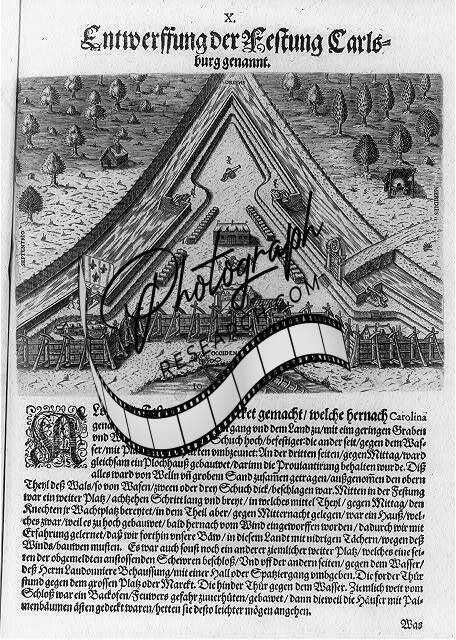 X.
Entwerffung der Festung Carls-
burg genannt.
ORIENS
SEPTENTRIO
MERIDIES
OCCIDENS
10
Photograph
RESEARCH.COM
gemacht/ welche hernach Carolina
gegang vnd dem Land zu/ mit ein geringen Graben
vnd Schuch hoch/ befestiget: die ander seit/ gegen dem Was-
ser/ mit vmbzeunet: An der dritten seiten/ gegen Mittag/ ward
gleichsam ein Plochhauß gebauwet/ darinn die Prouiantirung behalten wurde. Diß
alles ward von Welln vñ grobem Sand zusamen getragen/ außgenom̃en der obern
Theyl deß Wals/ so von Wasen/ zween oder drey Schuch dick/ beschlagen war. Mitten in der Festung
war ein weiter Platz/ achtzehen Schritt lang vnd breyt/ in welches mittel Theyl/ gegen Mittag/ den
Knechten jr Wachtplatz bereytet/ in dem Theil aber/ gegen Mitternacht gelegen/ war ein Hauß/ wel-
ches zwar/ weil es zu hoch gebauwet/ bald hernach vom Wind eingeworffen worden/ dadurch wir mit
Erfahrung gelernet/ daß wir forthin vnsere Bäw/ in diesem Land mit nidrigen Tächern/ wegen deß
Winds/ bauwen musten. Es war auch sonst noch ein anderer ziemlicher weiter Platz/ welches eine sei-
ten der obgemeldten anstossenden Schewren beschloß/ Vnd vff der andern seiten/ gegen dem Wasser/
deß Herrn Laudonniere Behaussung/ mit einer Hall oder Spatziergang vmbgeben. Die forder Thür
stund gegen dem grossen Platz oder Marckt. Die hinder Thür gegen dem Wasser. Ziemlich weit vom
Schloß war ein Backofen/ Feuwers gefahr zuuerhüten/ gebauwet/ dann dieweil die Häuser mit Pal-
menbäumen ästen gedeckt waren/ hetten sie desto leichter mögen angehen.
Was